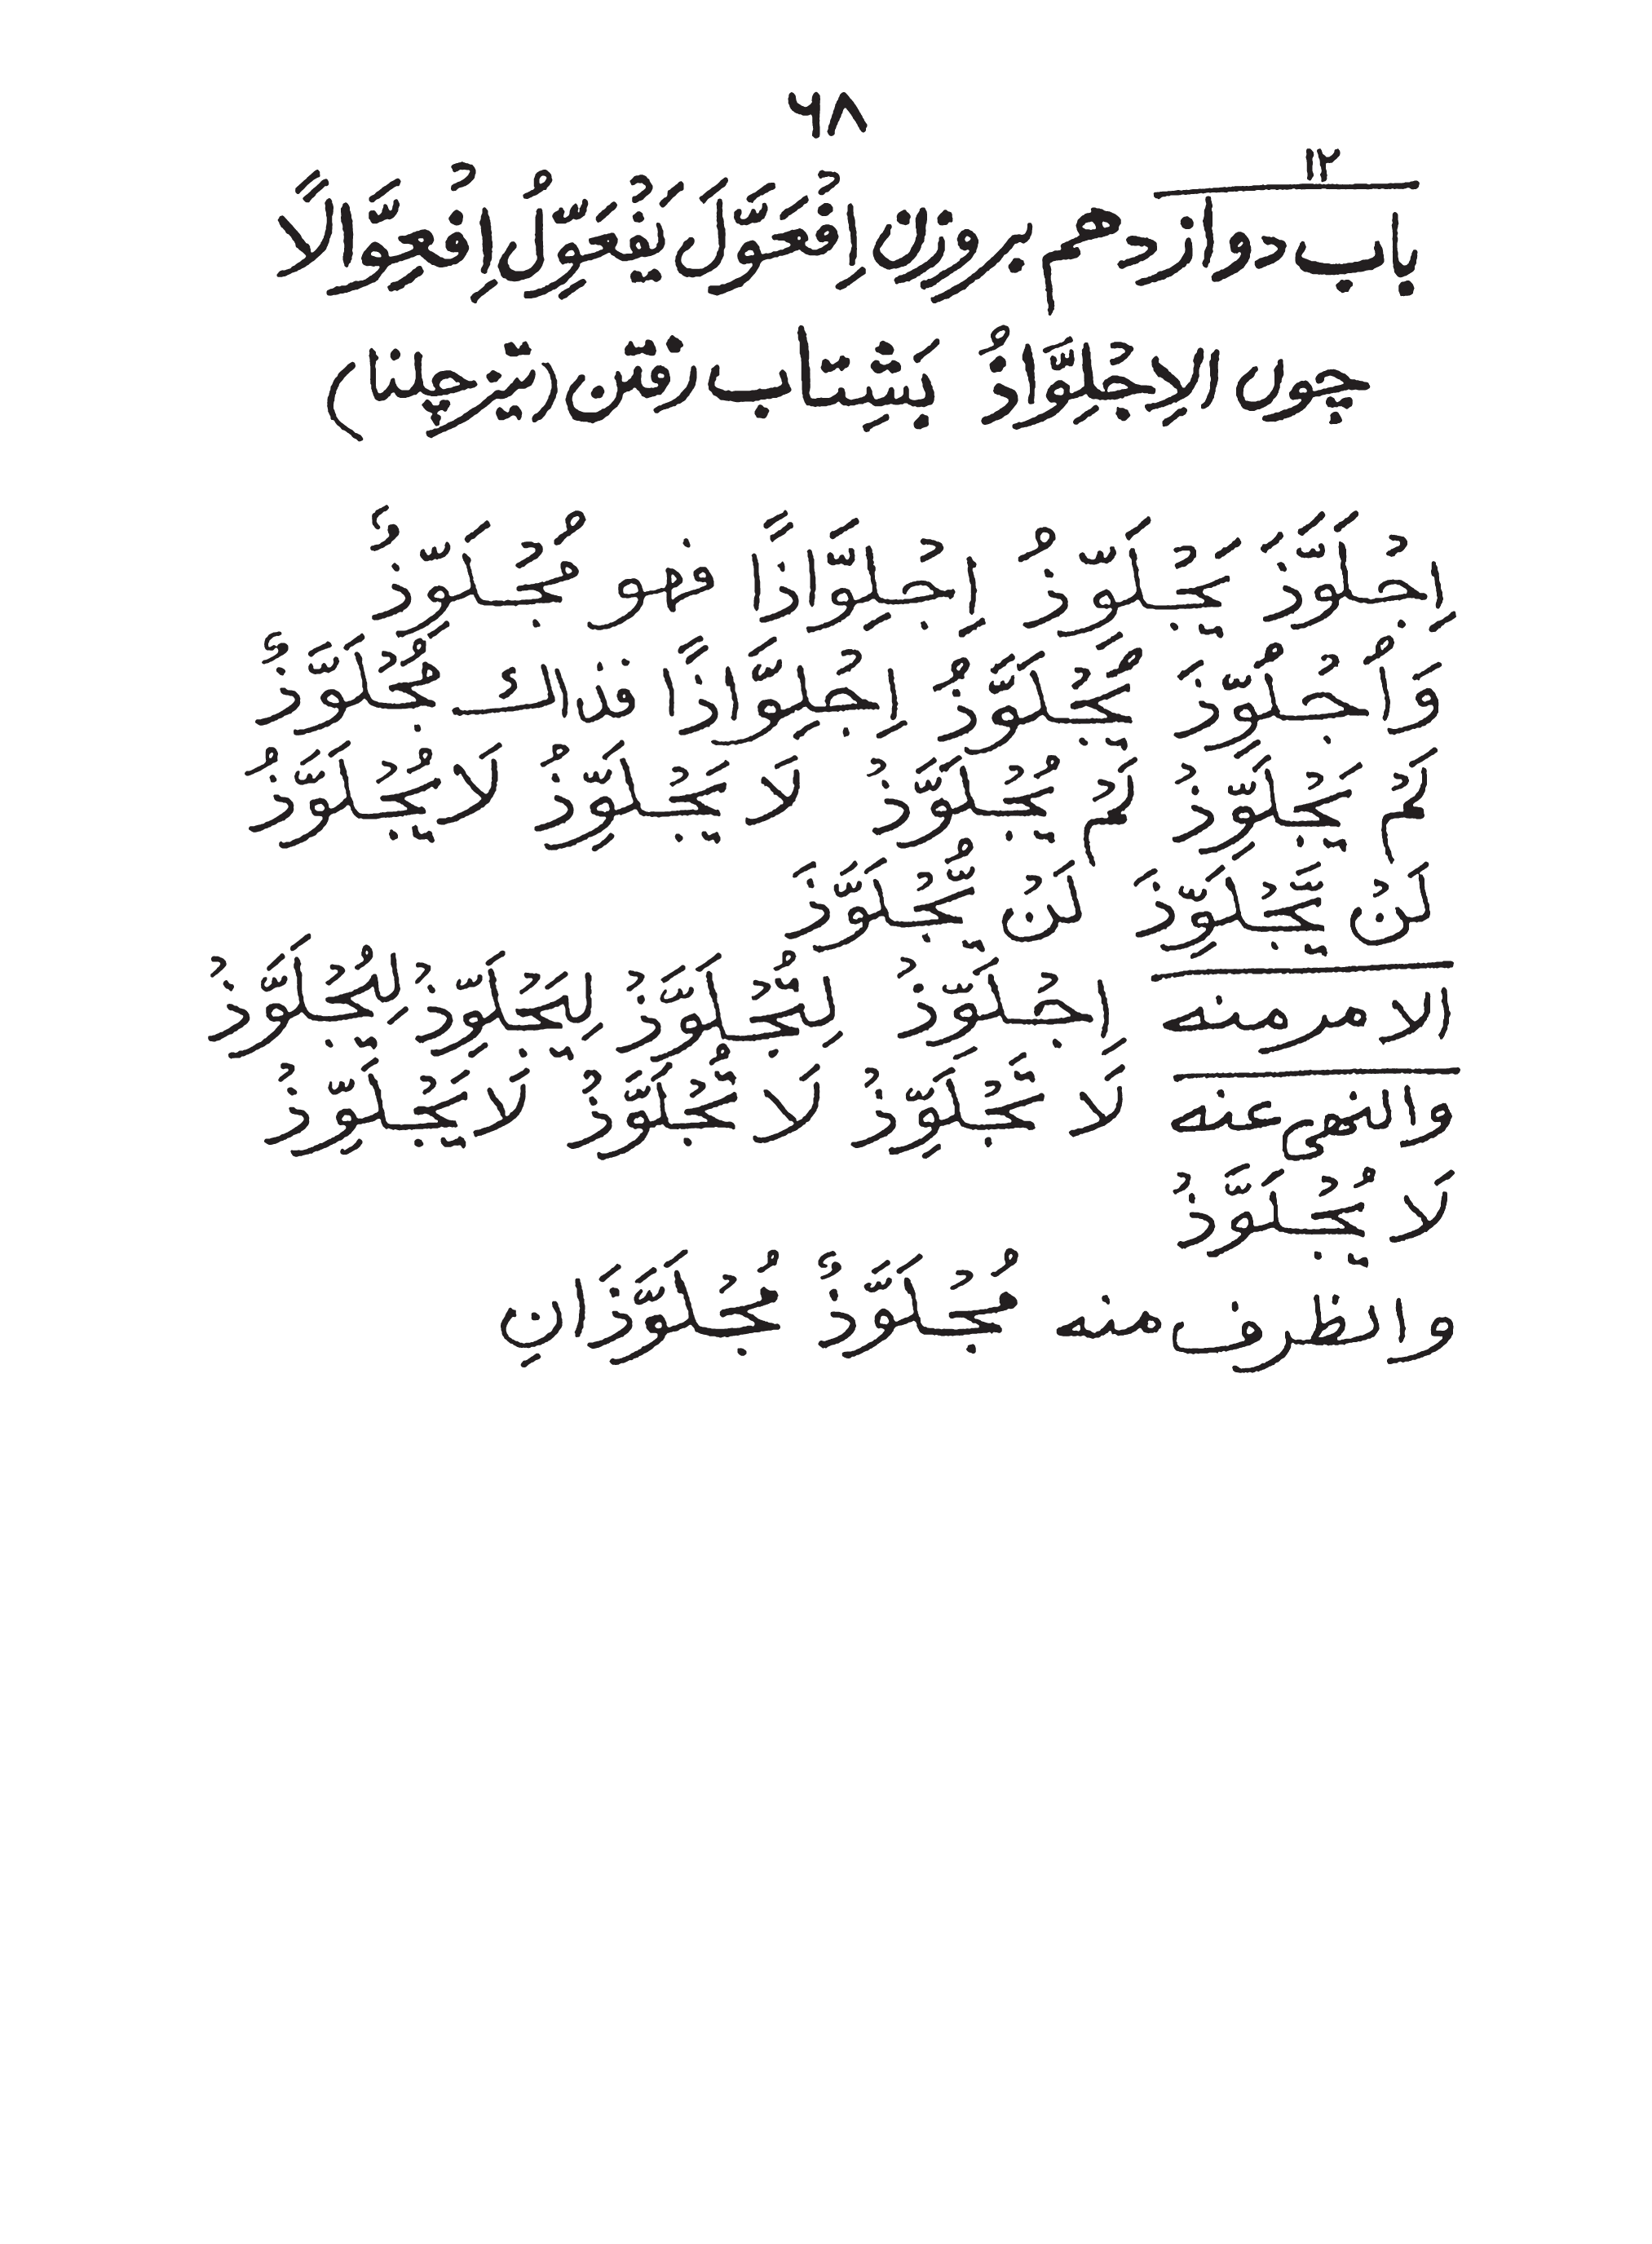 ٦٨
١٢
باب دوازدهم بروزن اِفْعَوَّلَ يَفْعَوِّلُ اِفْعِوَّالًا
چوں الاِجْلِوَّاذُ بَشِتاب رفتن (تیز چلنا)
اِجْلَوَّذَ يَجْلَوِّذُ اِجْلِوَّاذًا فهو مُجْلَوِّذٌ
وَاُجْلُوِّذَ يُجْلَوَّذُ اِجْلِوَّاذًا فذاك مُجْلَوَّذٌ
لَمْ يَجْلَوِّذْ لَمْ يُجْلَوَّذْ لَا يَجْلَوِّذُ لَا يُجْلَوَّذُ
لَنْ يَّجْلَوِّذَ لَنْ يُّجْلَوَّذَ
الامر منه اِجْلَوِّذْ لِتُجْلَوَّذْ لِيَجْلَوِّذْ لِيُجْلَوَّذْ
والنهى عنه لَا تَجْلَوِّذْ لَا تُجْلَوَّذْ لَا يَجْلَوِّذْ
لَا يُجْلَوَّذْ
والظرف منه مُجْلَوَّذٌ مُجْلَوَّذَانِ